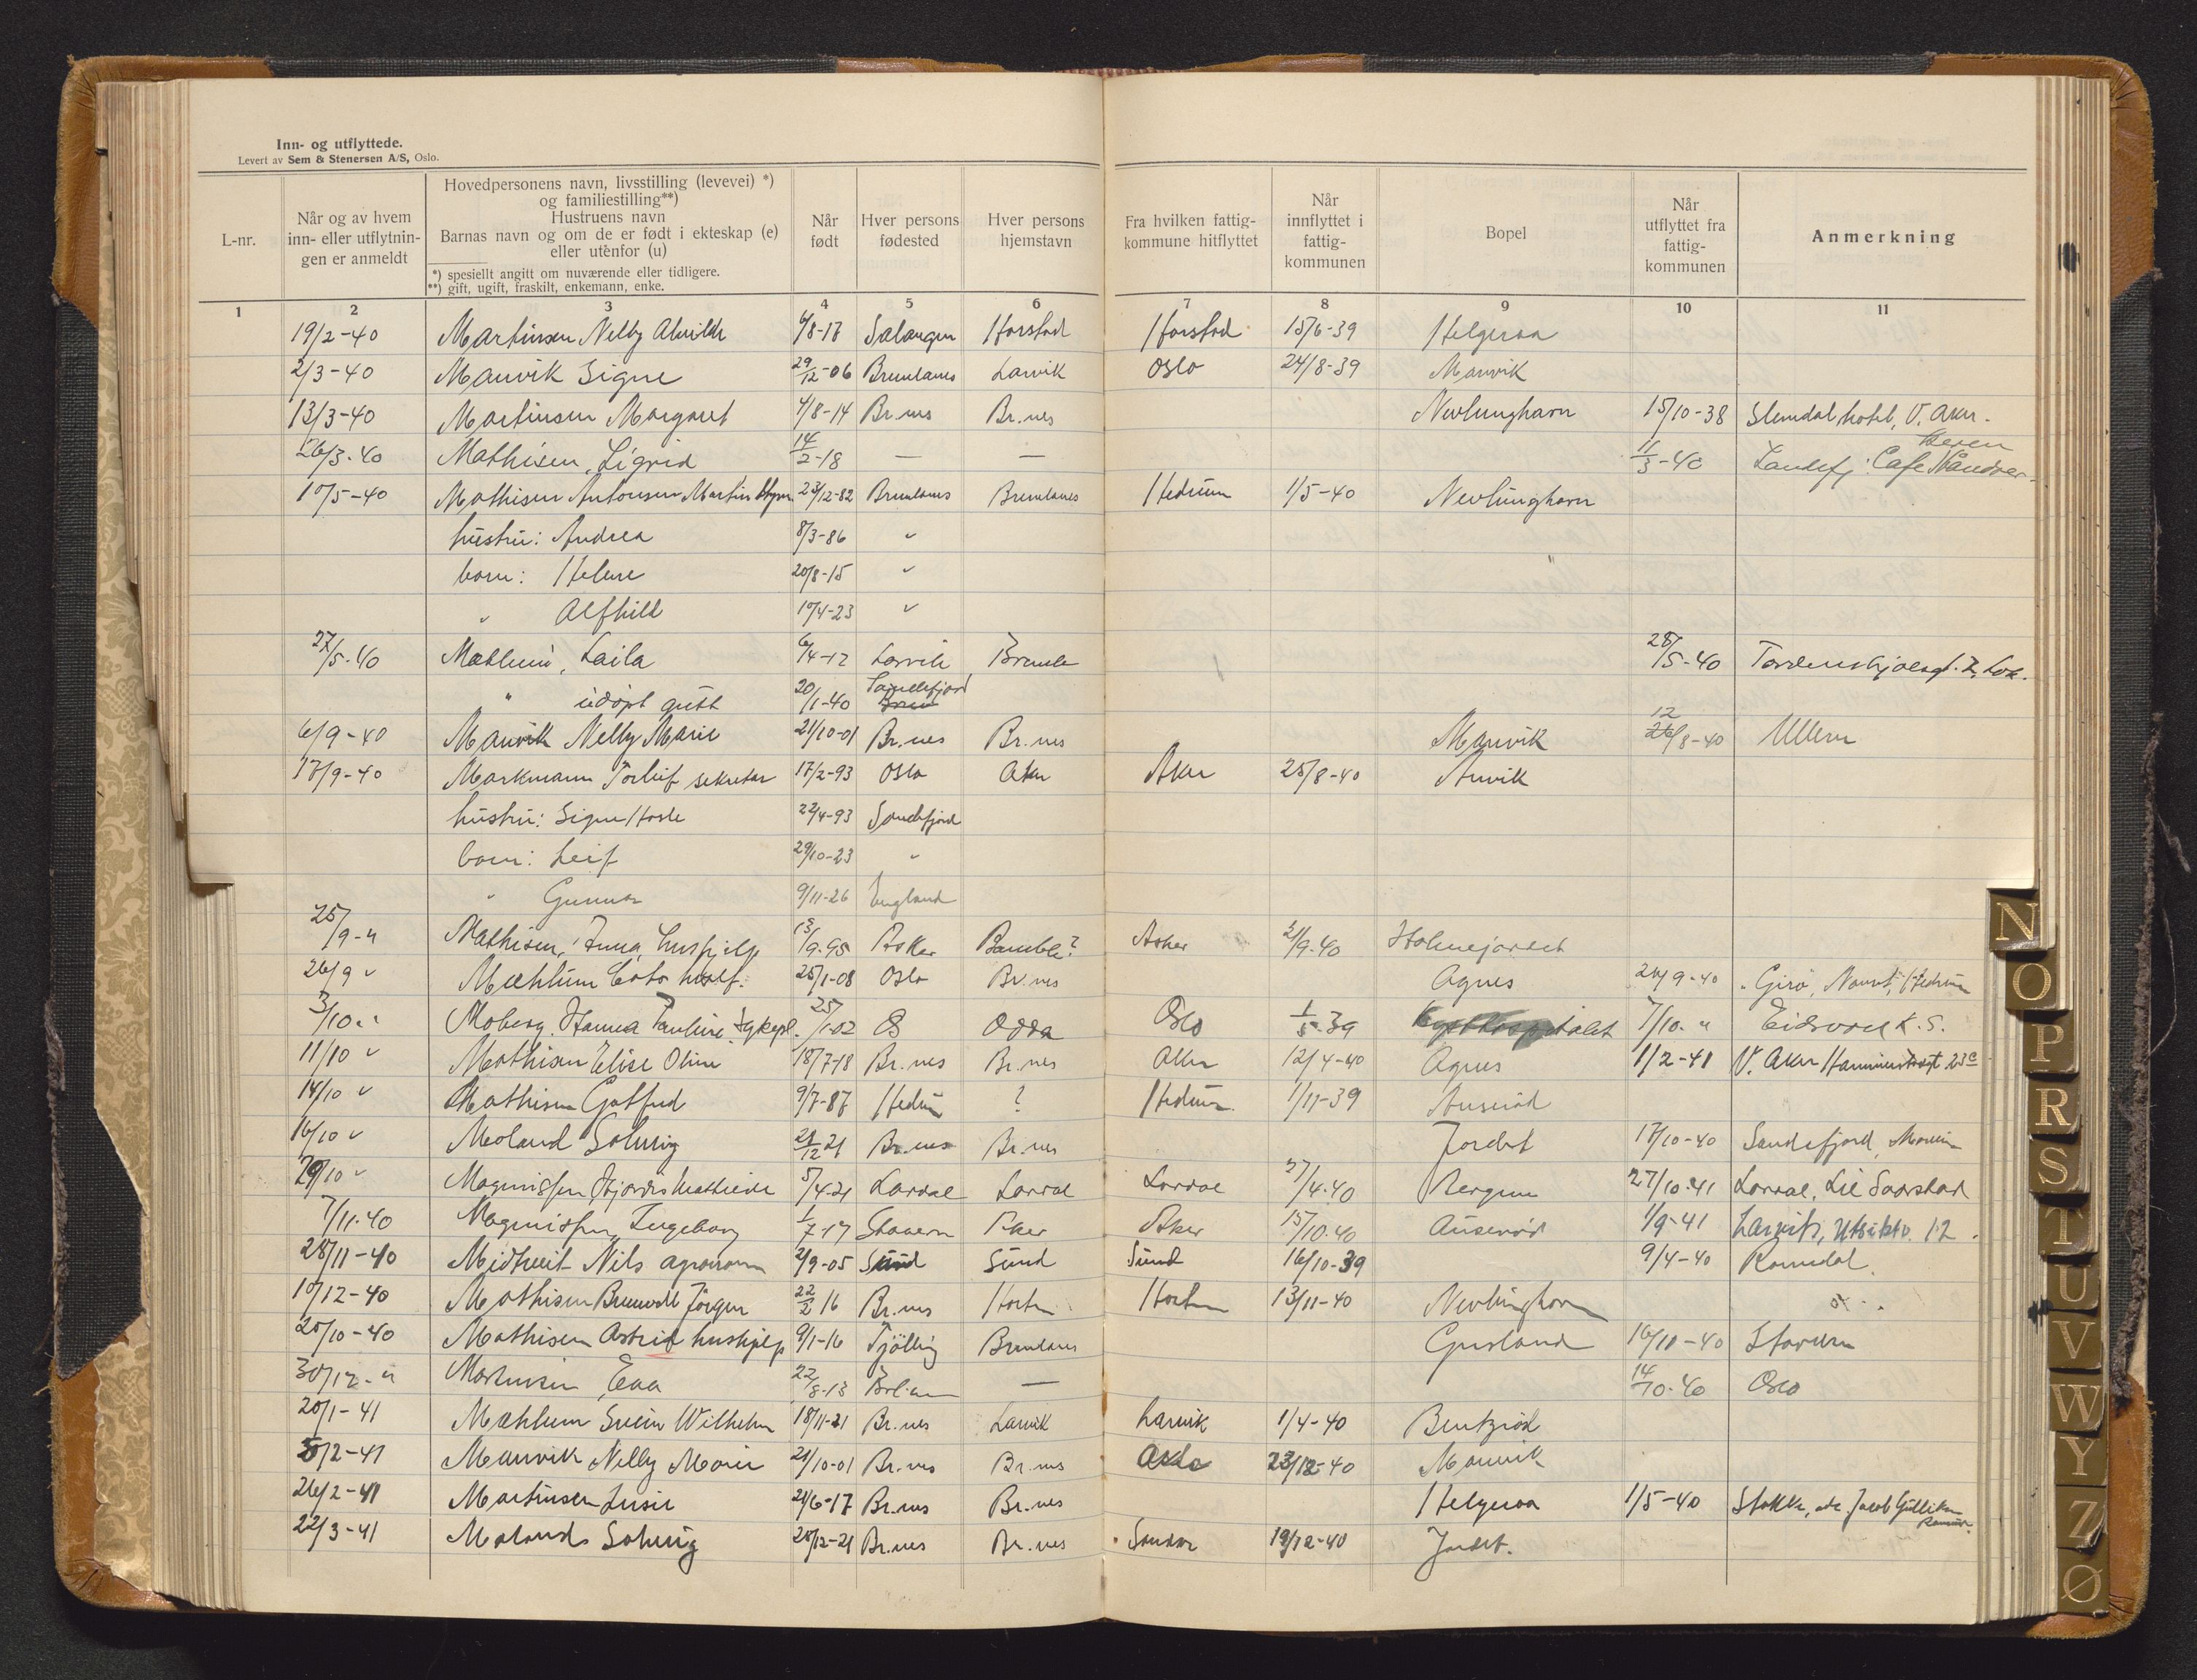 Inn- og utflyttede.
Levert av Sem & Stenersen A/S, Oslo.
L-nr.
Når og av hvem inn- eller utflytnin- gen er anmeldt
Hovedpersonens navn, livsstilling (levevei) *) og familiestilling**) Hustruens navn Barnas navn og om de er født i ekteskap (e) eller utenfor (u)
*) spesiellt angitt om nuværende eller tidligere.
**) gift, ugift, fraskilt, enkemann, enke.
Når født
Hver persons fødested
Hver persons hjemstavn
Fra hvilken fattig- kommune hitflyttet
Når innflyttet i fattig- kommunen
Bopel
Når utflyttet fra fattig- kommunen
Anmerkning
1 2 3 4 5 6 7 8 9 10 11
19/2-40 Martinsen Nelly 4/8-17 Salangen Harstad Harstad 15/6-39 Helgeroa
2/3-40 Manvik Signe 29/12-06 Brunlanes Larvik Oslo 24/8-39 Manvik
13/3-40 Martinsen Margaret 4/8-14 Br.nes Br.nes Nevlunghavn 15/10-38 Slemdal hotel, V. Aker.
26/3-40 Mathisen, Sigrid 14/2-18 — — 11/3-40 Sandefj. Cafe Håndver-
keren
10/5-40 Mathisen Antonsen Martin 23/12-82 Brunlanes Brunlanes Hedrum 1/5-40 Nevlunghavn
hustru: Andrea 8/3-86 "
barn: Helene 20/8-15 "
" Alfhild 10/4-23 "
27/5-40 Mæhlum, Laila 6/4-12 Larvik Brunla 28/5-40
" udøpt gutt 20/1-40 Sandefjord
6/9-40 Manvik Nelly Marie 21/10-01 Br.nes Br.nes Manvik 12/8-40 Ullern
17/9-40 Markmann Torleif sekretær 17/2-93 Oslo Aker Aker 25/8-40 Anvik
hustru: Signe 22/4-93 Sandefjord
barn: Leif 29/10-23 "
" Gunnar 9/11-26 England
25/9-" Mathisen, Anna, hushjelp 13/9-95 Asker Bamble? Asker 21/9-40 Holmejordet
26/9 " Mæhlum 25/1-08 Oslo Br.nes Agnes 24/9-40 Hedrum
3/10 " Moberg, Hanna Pauline, sykepl. 25/1-02 Os Odda Oslo 1/5-39 Kysthospitalet 7/10-" Eidsvoll K.S.
11/10 " Mathisen Elise Oline 18/7-18 Br.nes Br.nes Aker 12/4-40 Agnes 1/2-41 V. Aker
14/10 " Mathisen Gotfred 9/7-87 Hedrum ? Hedrum 1/11-39
16/10 " Moland Solveig 21/12-21 Br.nes Br.nes Jordet 17/10-40 Sandefjord,
29/10 " Magnussen Hjørdis Mathilde 5/4-21 Lardal Lardal Lardal 27/4-40 Bergene 27/10-41 Lardal,
7/11-40 Magnussen, Ingeborg 1/7-17 Stavern Aker Aker 15/10-40 Auserød 1/9-41 Larvik, Utsiktv. 12.
28/11-40 Midtveit Nils agronom 2/9-05 Sund Sund Sund 16/10-39 9/4-40 Romedal.
10/12-40 Mathisen Jørgen 22/2 16 Br.nes Horten Horten 13/11-40 Nevlunghavn
20/10-40 Mathisen Astrid hushjelp 9/1-16 Tjølling Brunlanes Gusland 16/10-40 Stavern
30/12-" Martinsen, Eva 22/8-13 — 14/10-40 Oslo
20/1-41 Mæhlum Svein Wilhelm 18/11-21 Br.nes Larvik Larvik 1/4-40 Bentzrød
5/2-41 Manvik Nelly Marie 21/10-01 Br.nes Br.nes 23/12-40 Manvik
26/2-41 Martinsen Lusie 21/6-17 Br.nes Br.nes Helgeroa 1/5-40 Stokke, adr. Jacob Gulliksen
22/3-41 Molands Solveig 20/12-21 Br.nes Br.nes Sandar 19/12-40 Jordet.
N
O
P
R
S
T
U
V
W
Y
Z
Ø